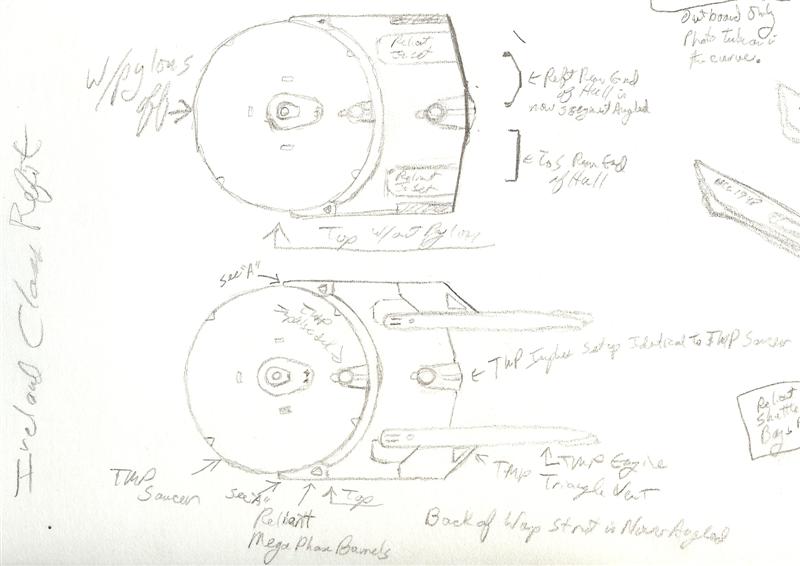 Ireland Class Refit
W/pylons
off
Reliant
Outboard Only
Photo
in
the curve.
← Refit Rear End
of Hull is
now 3 segment Angled
← TOS Rear End
of Hull
Reliant
Top W/out Pylons
see "A"
TMP
← TMP Impulse Set up Identical to TMP Saucer
NCC 1748
Reliant
Shuttle
Bays
TMP
Saucer
see "A"
Top
Reliant
Mega Phaser Barrels
TMP
TMP Engine
Triangle Vent
Back of Warp Strut is Now Angled